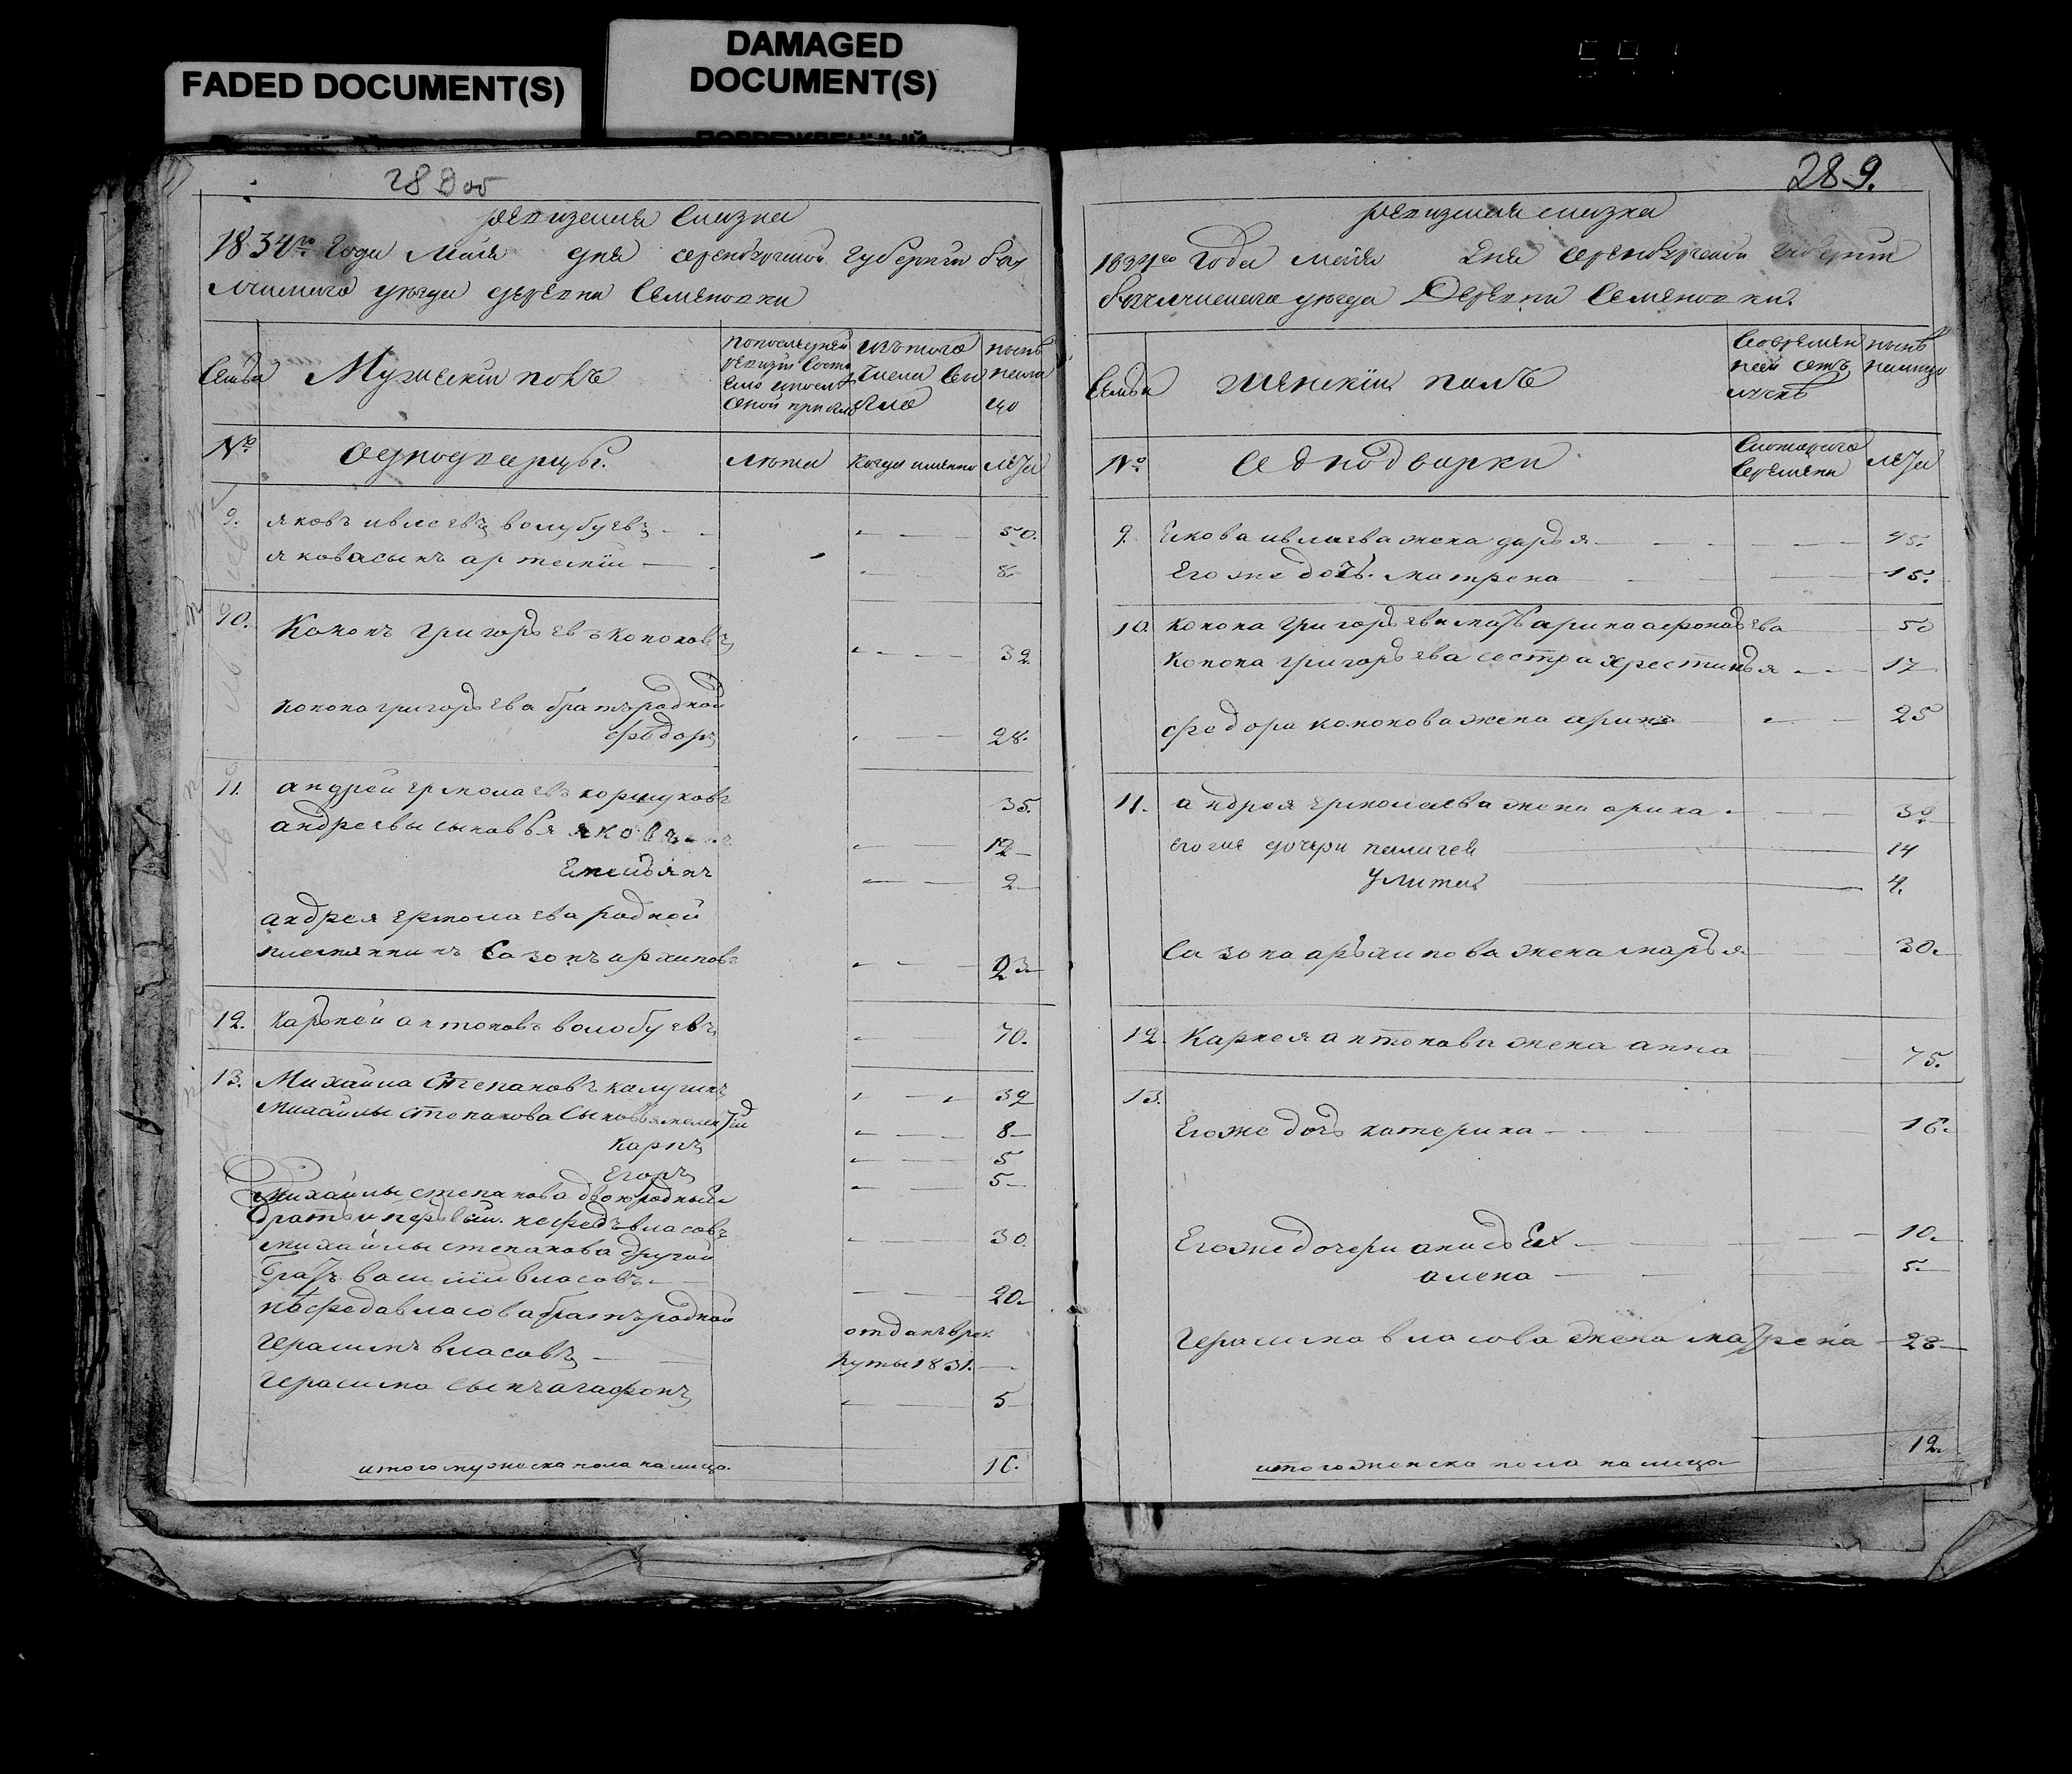 FADED DOCUMENT(S)
DAMAGED
DOCUMENT(S)
288 об
ревизская Сказка
1834го Года Майя дня оренбургской губернии бу
лминскаго уезда деревни Семеновки
Семьи
Мужеский полъ
по последней
ревизии состо
яло и после
оной прибыло
изъ того
числа вы
было
ныне
на ли
цо
№
однодварцы.
лета
когда именно
лета
9. яковъ ивлеевъ волубуевъ 50.
якова сынъ артемий 8
10. Кононъ григорьевъ кононовъ 32
конона григорьева братъ родной
федоръ 28.
11. андрей ермолаевъ коршуковъ 35.
андреевы сыновья яковъ 12
Емельянъ 2
андрея ермолаева родной
племянникъ Сазонъ архиповъ 23
12. Карней антоновъ волобуевъ 70.
13. Михайла Степановъ калугинъ 39
михайлы степанова сыновья 8
Карпъ 5
Егоръ 5
михайлы степанова двоюродныи
братьи первый нефедъ власовъ 30
михайлы степанова другой
братъ василий власовъ 20
нефеда власова братъ родной
герасимъ власовъ отданъ в рек
руты 1831.
герасима сынъ агафонъ 5
итого мужеска пола на лицо. 16.
289.
ревизская сказка
1834го Года майя дня оренбургской губернии
бугулминскаго уезда Деревни Семеновки.
Семьи
женский полъ
Во времен
ной отъ
лучке
ныне
на лицо
№
Однодворки
С котораго
времени
лета
9. Якова ивлиева жена дарья 45.
Его же дочь матрена 15.
10. конона григорьева мать арина афонасьева 50
конона григорьева сестра христинья 17
федора кононова жена арина 25
11. андрея ермолаева жена арина 32
его же дочери пелагея 14
улита 4.
Сазона архипова жена марья 30
12. Карнея антонова жена анна 75.
13.
Его же дочь катерина 16.
Его же дочери 10.
алена 5.
герасима власова жена матрена 28
итого женска пола на лицо 12